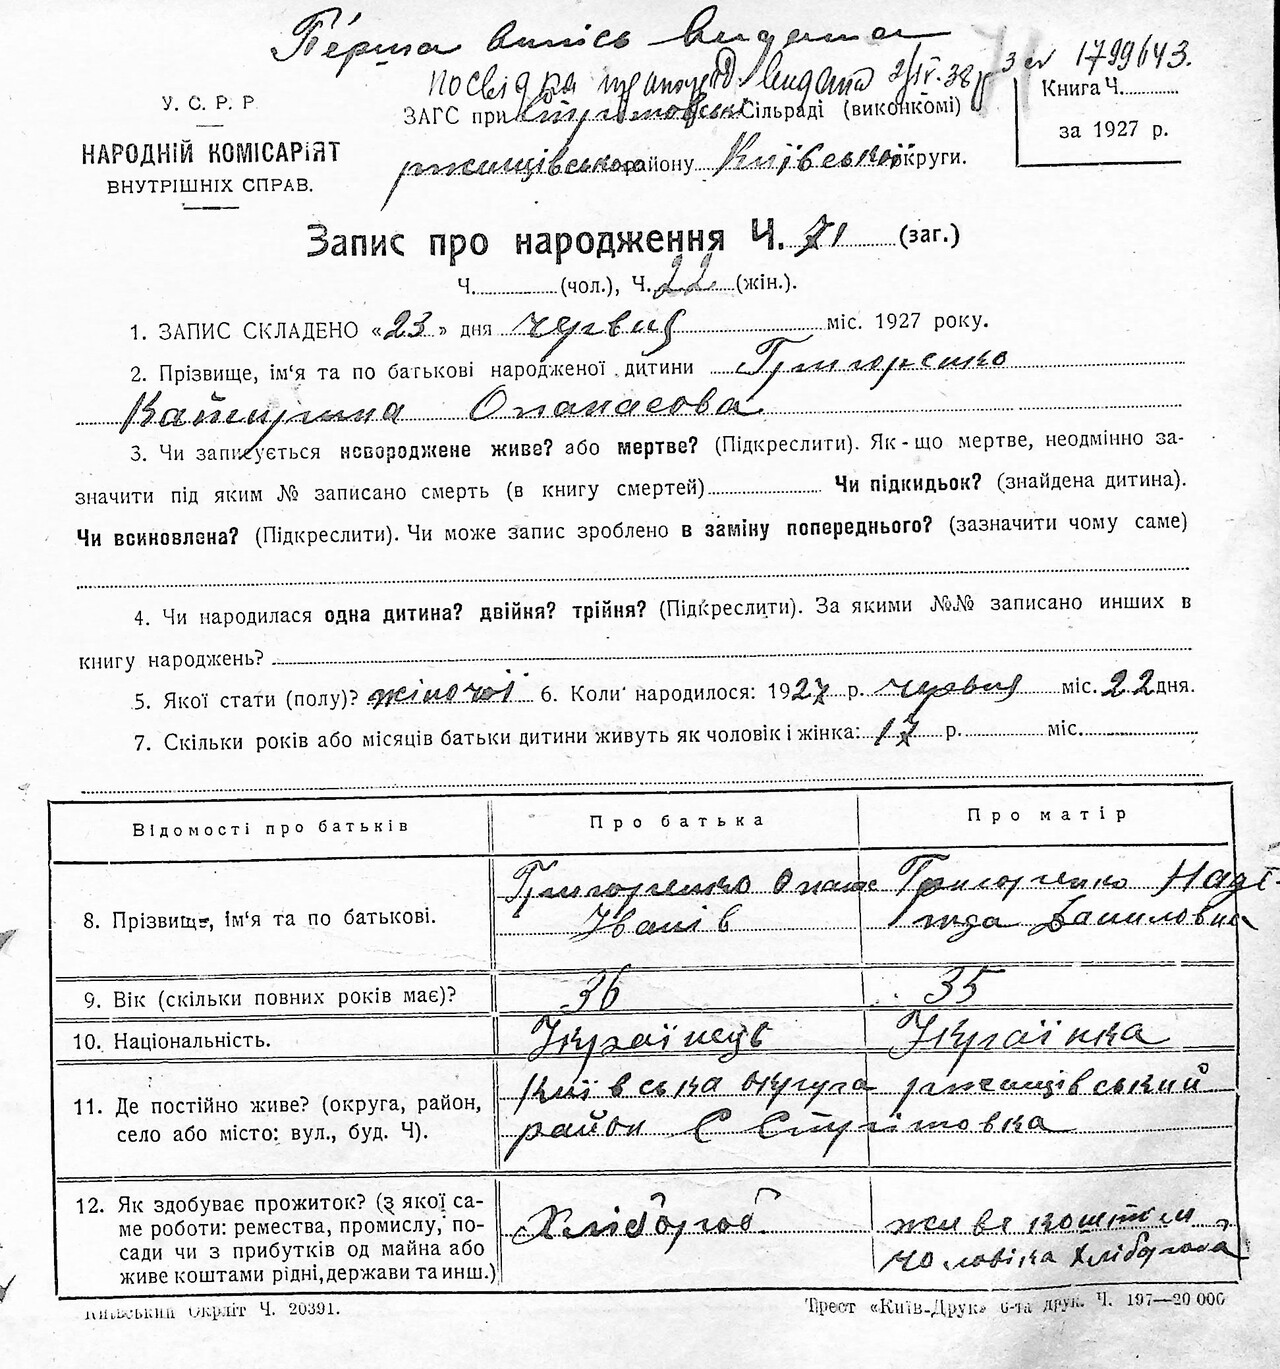 Перша випись видана
посвідка видана 2/IV-38 р з ч 1799643.
У. С. Р. Р.
НАРОДНІЙ КОМІСАРІЯТ
ВНУТРІШНІХ СПРАВ.
ЗАГС при Стритовській Сільраді (виконкомі)
ржищівського району Київської округи.
Книга Ч.
за 1927 р.
Запис про народження Ч. 71 (заг.)
Ч. (чол.), Ч. 22 (жін.).
1. ЗАПИС СКЛАДЕНО «23» дня червця міс. 1927 року.
2. Прізвище, ім'я та по батькові народженої дитини Григоренко
Катерина Опанасова
3. Чи записується новороджене живе? або мертве? (Підкреслити). Як-що мертве, неодмінно за-
значити під яким № записано смерть (в книгу смертей) Чи підкидьок? (знайдена дитина).
Чи всиновлена? (Підкреслити). Чи може запис зроблено в заміну попереднього? (зазначити чому саме)
4. Чи народилася одна дитина? двійня? трійня? (Підкреслити). За якими №№ записано инших в
книгу народжень?
5. Якої стати (полу)? жіночої 6. Коли народилося: 1927 р. червця міс. 22 дня.
7. Скільки років або місяців батьки дитини живуть як чоловік і жінка: 17 р. міс.
Відомості про батьків
Про батька
Про матір
8. Прізвище, ім'я та по батькові.
Григоренко Опанас
Іванів
Григоренко Наді-
жда Даниловна
9. Вік (скільки повних років має)?
36
35
10. Національність.
Українець
Українка
11. Де постійно живе? (округа, район,
село або місто: вул., буд. Ч).
Київська округа ржищівський
район С Стритовка
12. Як здобуває прожиток? (з якої са-
ме роботи: ремества, промислу, по-
сади чи з прибутків од майна або
живе коштами рідні, держави та инш.)
Хлібороб
живе коштом
чоловіка хлібороба
Київський Окрліт Ч. 20391.
Трест «Київ-Друк» 6-та друк. Ч. 197—20 000